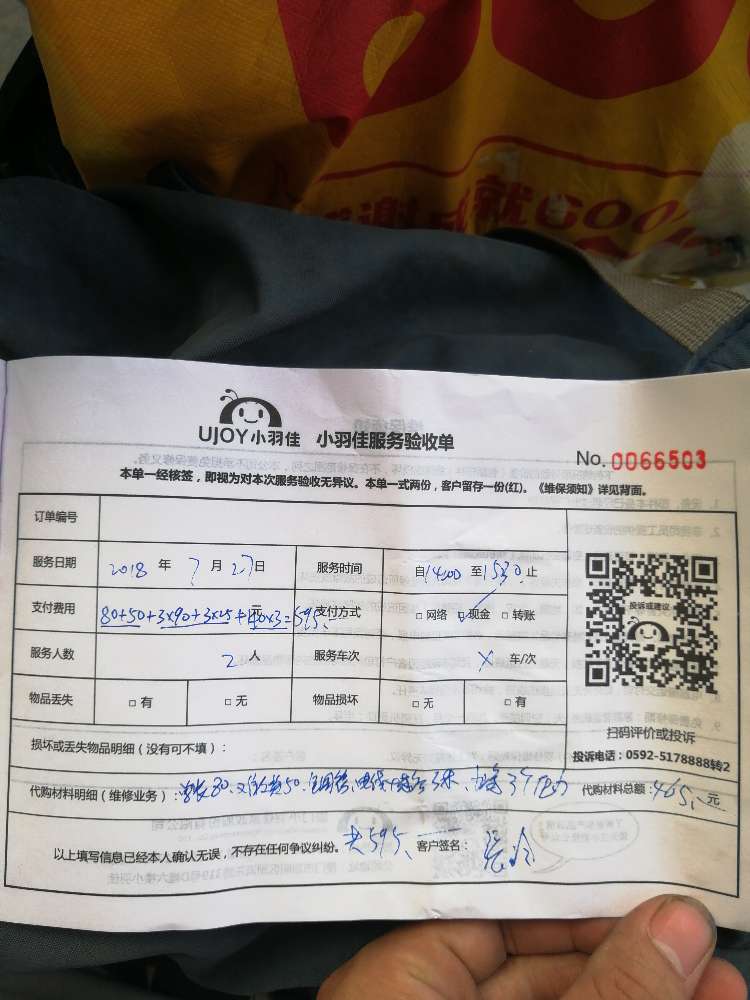 就GOO
UJOY小羽佳 小羽佳服务验收单
No. 0066503
本单一经核签，即视为对本次服务验收无异议。本单一式两份，客户留存一份(红)。《维保须知》详见背面。
订单编号
服务日期 2018 年 7 月 27 日 服务时间 自 1400 至 1530 止
支付费用 80+50+3×90+3×25+40×3=595 元 支付方式 □网络 □现金 □转账
服务人数 2 人 服务车次 X 车/次
物品丢失 □有 □无 物品损坏 □无 □有
损坏或丢失物品明细（没有可不填）：
投诉或建议
扫码评价或投诉
投诉电话：0592-5178888转2
代购材料明细（维修业务）： 代购材料总额：465 元
以上填写信息已经本人确认无误，不存在任何争议纠纷。 共595 客户签名：